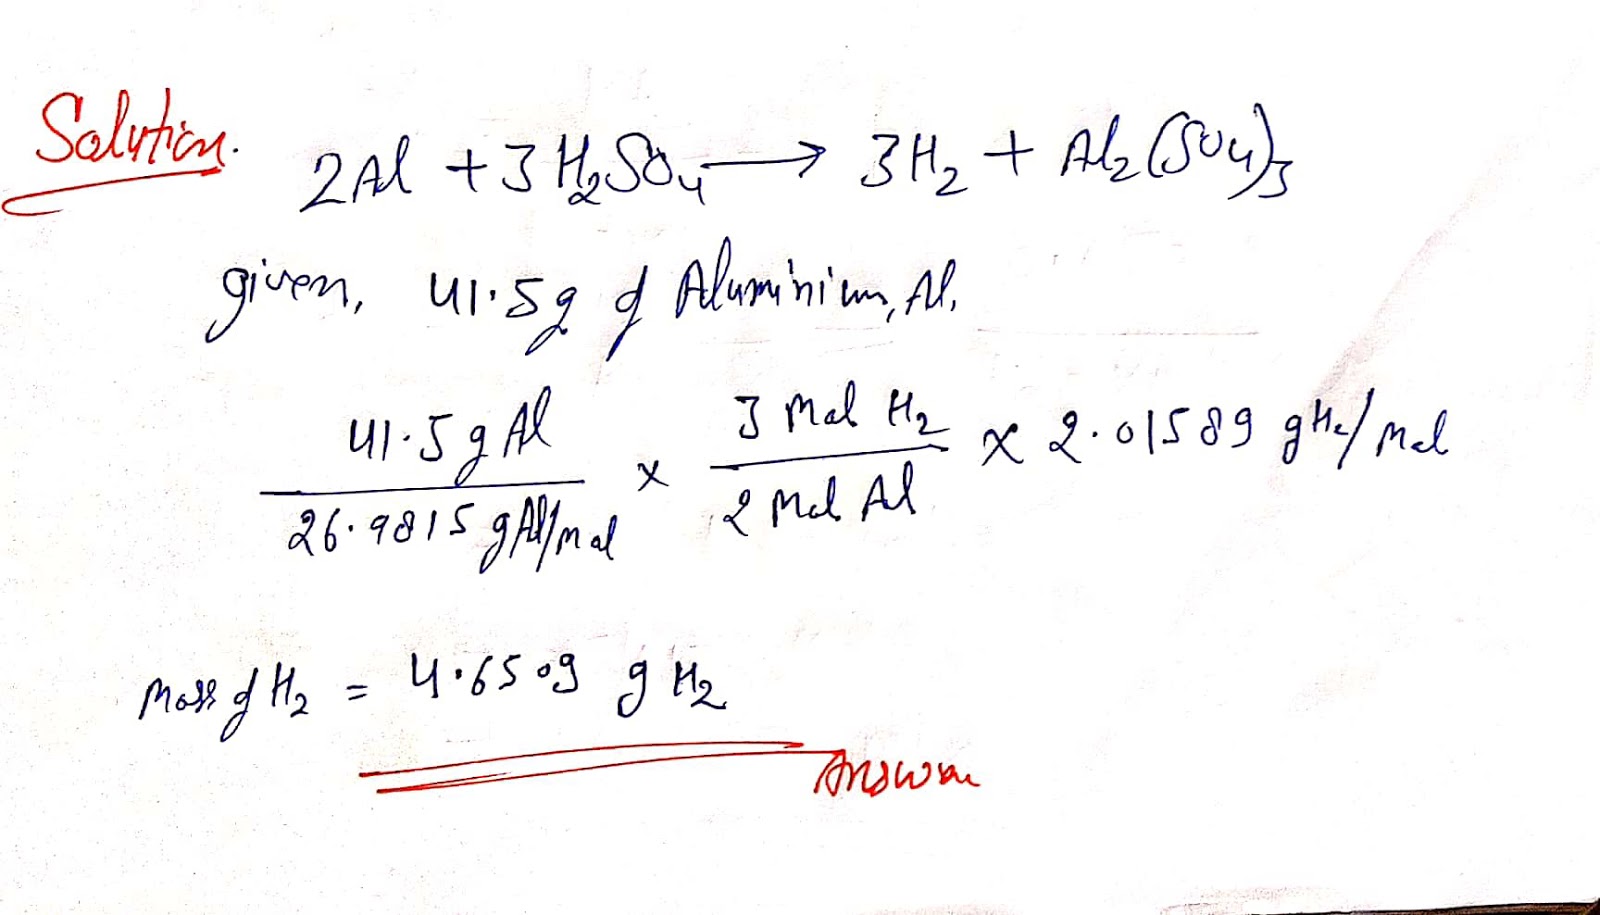 Solution.
2Al + 3H₂SO₄ → 3H₂ + Al₂(SO₄)₃
given, 41.5g of Aluminium, Al.
41.5 g Al / 26.9815 g Al/mol × 3 mol H₂ / 2 mol Al × 2.01589 g H₂/mol
Mass of H₂ = 4.6509 g H₂
Answer